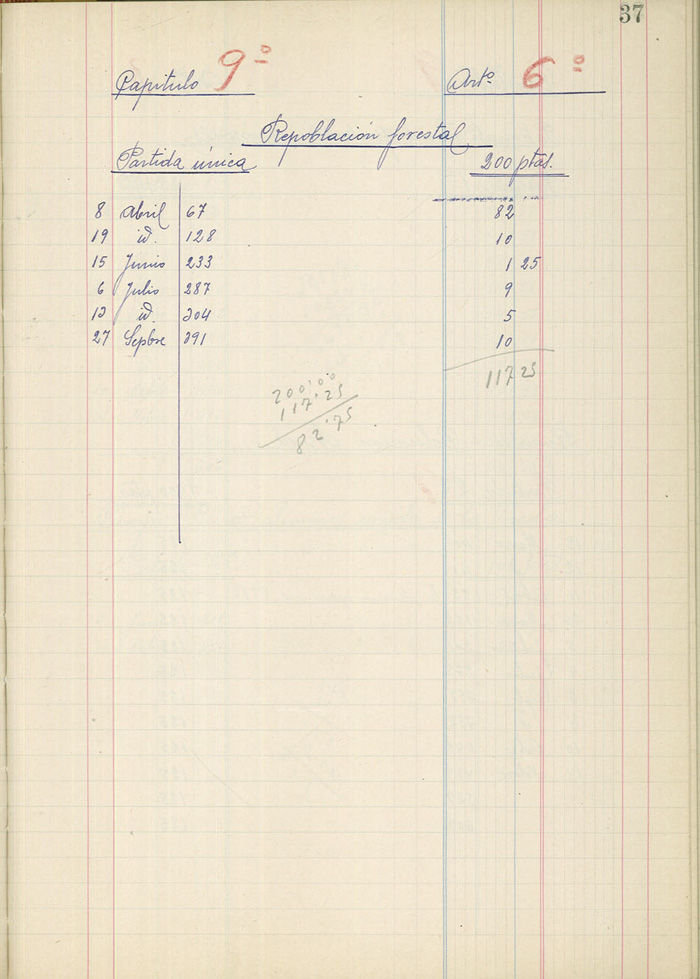 37
Capitulo 9º Artº 6º
Repoblación forestal
Partida única 200 ptas.
8 Abril 67 82
19 id. 128 10
15 Junio 233 1 25
6 Julio 287 9
13 id. 304 5
27 Sepbre 391 10
117 25
200'00
117'25
82'75